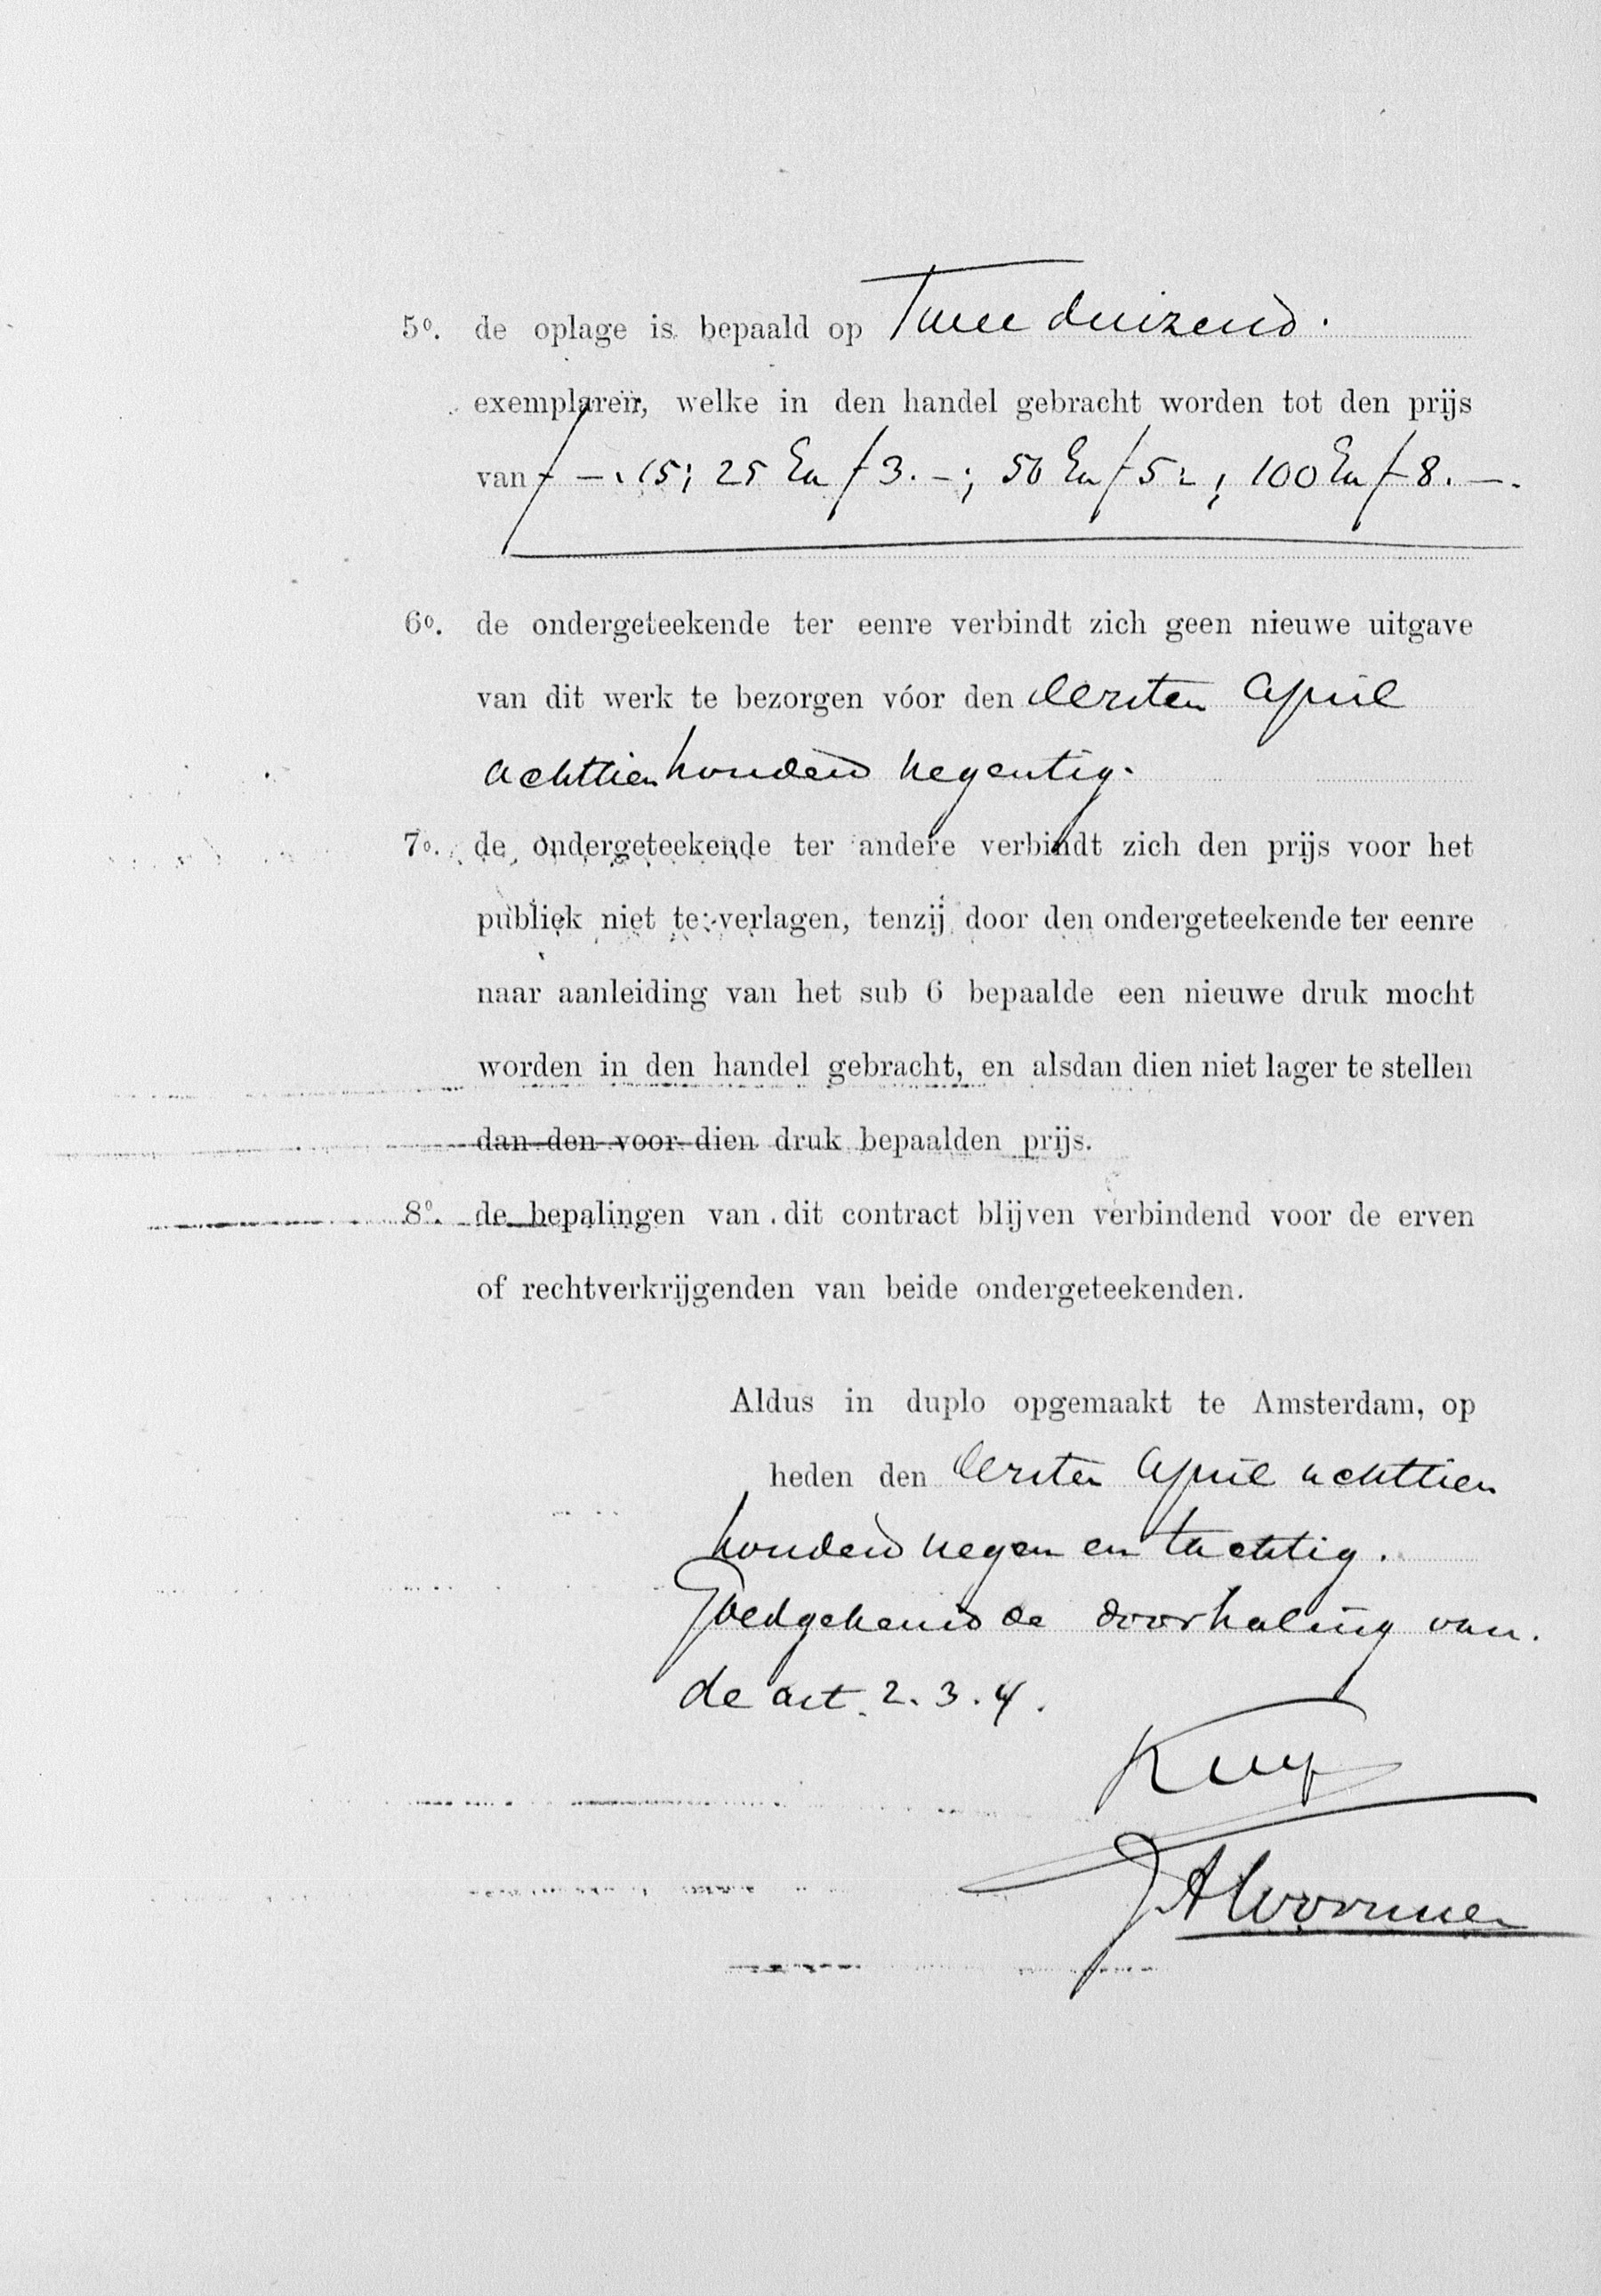 5º. de oplage is bepaald op Twee duizend.
exemplaren, welke in den handel gebracht worden tot den prijs
van f —.15; 25 Ex f 3.—; 50 Ex f 5.—; 100 Ex f 8.—.
6º. de ondergeteekende ter eenre verbindt zich geen nieuwe uitgave
van dit werk te bezorgen vóor den eersten April
achttienhonderd negentig.
7º. de ondergeteekende ter andere verbindt zich den prijs voor het
publiek niet te verlagen, tenzij door den ondergeteekende ter eenre
naar aanleiding van het sub 6 bepaalde een nieuwe druk mocht
worden in den handel gebracht, en alsdan dien niet lager te stellen
dan den voor dien druk bepaalden prijs.
8º. de bepalingen van dit contract blijven verbindend voor de erven
of rechtverkrijgenden van beide ondergeteekenden.
Aldus in duplo opgemaakt te Amsterdam, op
heden den eersten April achttien
honderd negen en tachtig.
Goedgekeurd de doorhaling van
de art. 2. 3. 4.
Kuyper
JAWormser